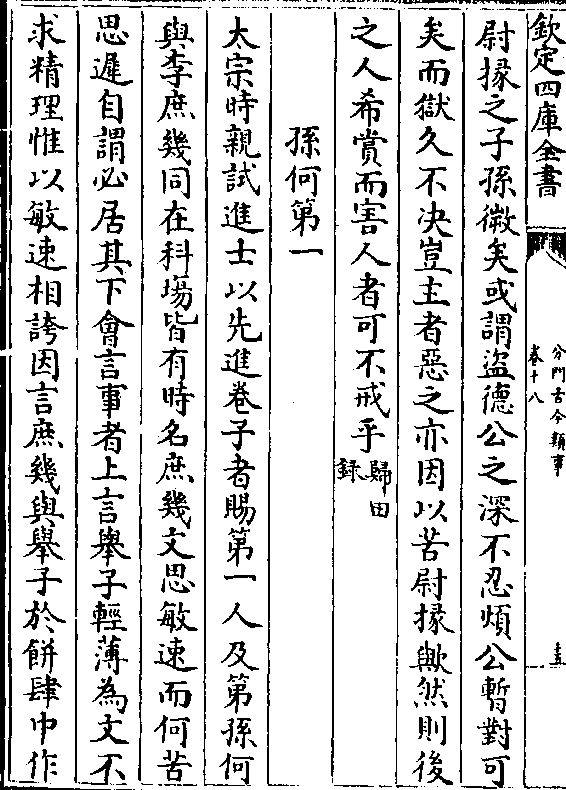 欽定四庫全書
分門古今類事
卷十八
十五
尉掾之子孫微矣或謂盜德公之深不忍煩公暫對可
矣而獄久不決豈主者惡之亦因以苦尉掾歟然則後
之人希賞而害人者可不戒乎歸田
錄
孫何第一
太宗時親試進士以先進卷子者賜第一人及第孫何
與李庶幾同在科場皆有時名庶幾文思敏速而何苦
思遲自謂必居其下會言事者上言舉子輕薄為文不
求精理惟以敏速相誇因言庶幾與舉子於餅肆中作